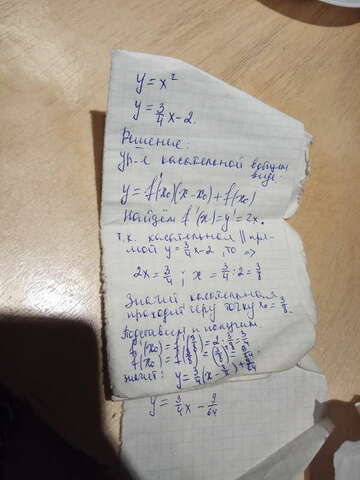 y = x²
y = 3/4 x - 2.
Решение:
Ур-е касательной в общем
виде:
y = f'(x₀)(x - x₀) + f(x₀)
Найдём f'(x) = y' = 2x.
т.к. касательная || пря-
мой y = 3/4 x - 2, то =>
2x = 3/4 ; x = 3/4 : 2 = 3/8
Значит касательная
проходит через точку x₀ = 3/8.
Подставим и получим
f'(x₀) = f'(3/8) = 2 · 3/8 = 3/4
f(x₀) = f(3/8) = (3/8)² = 9/64
значит: y = 3/4 (x - 3/8) + 9/64
y = 3/4 x - 9/64